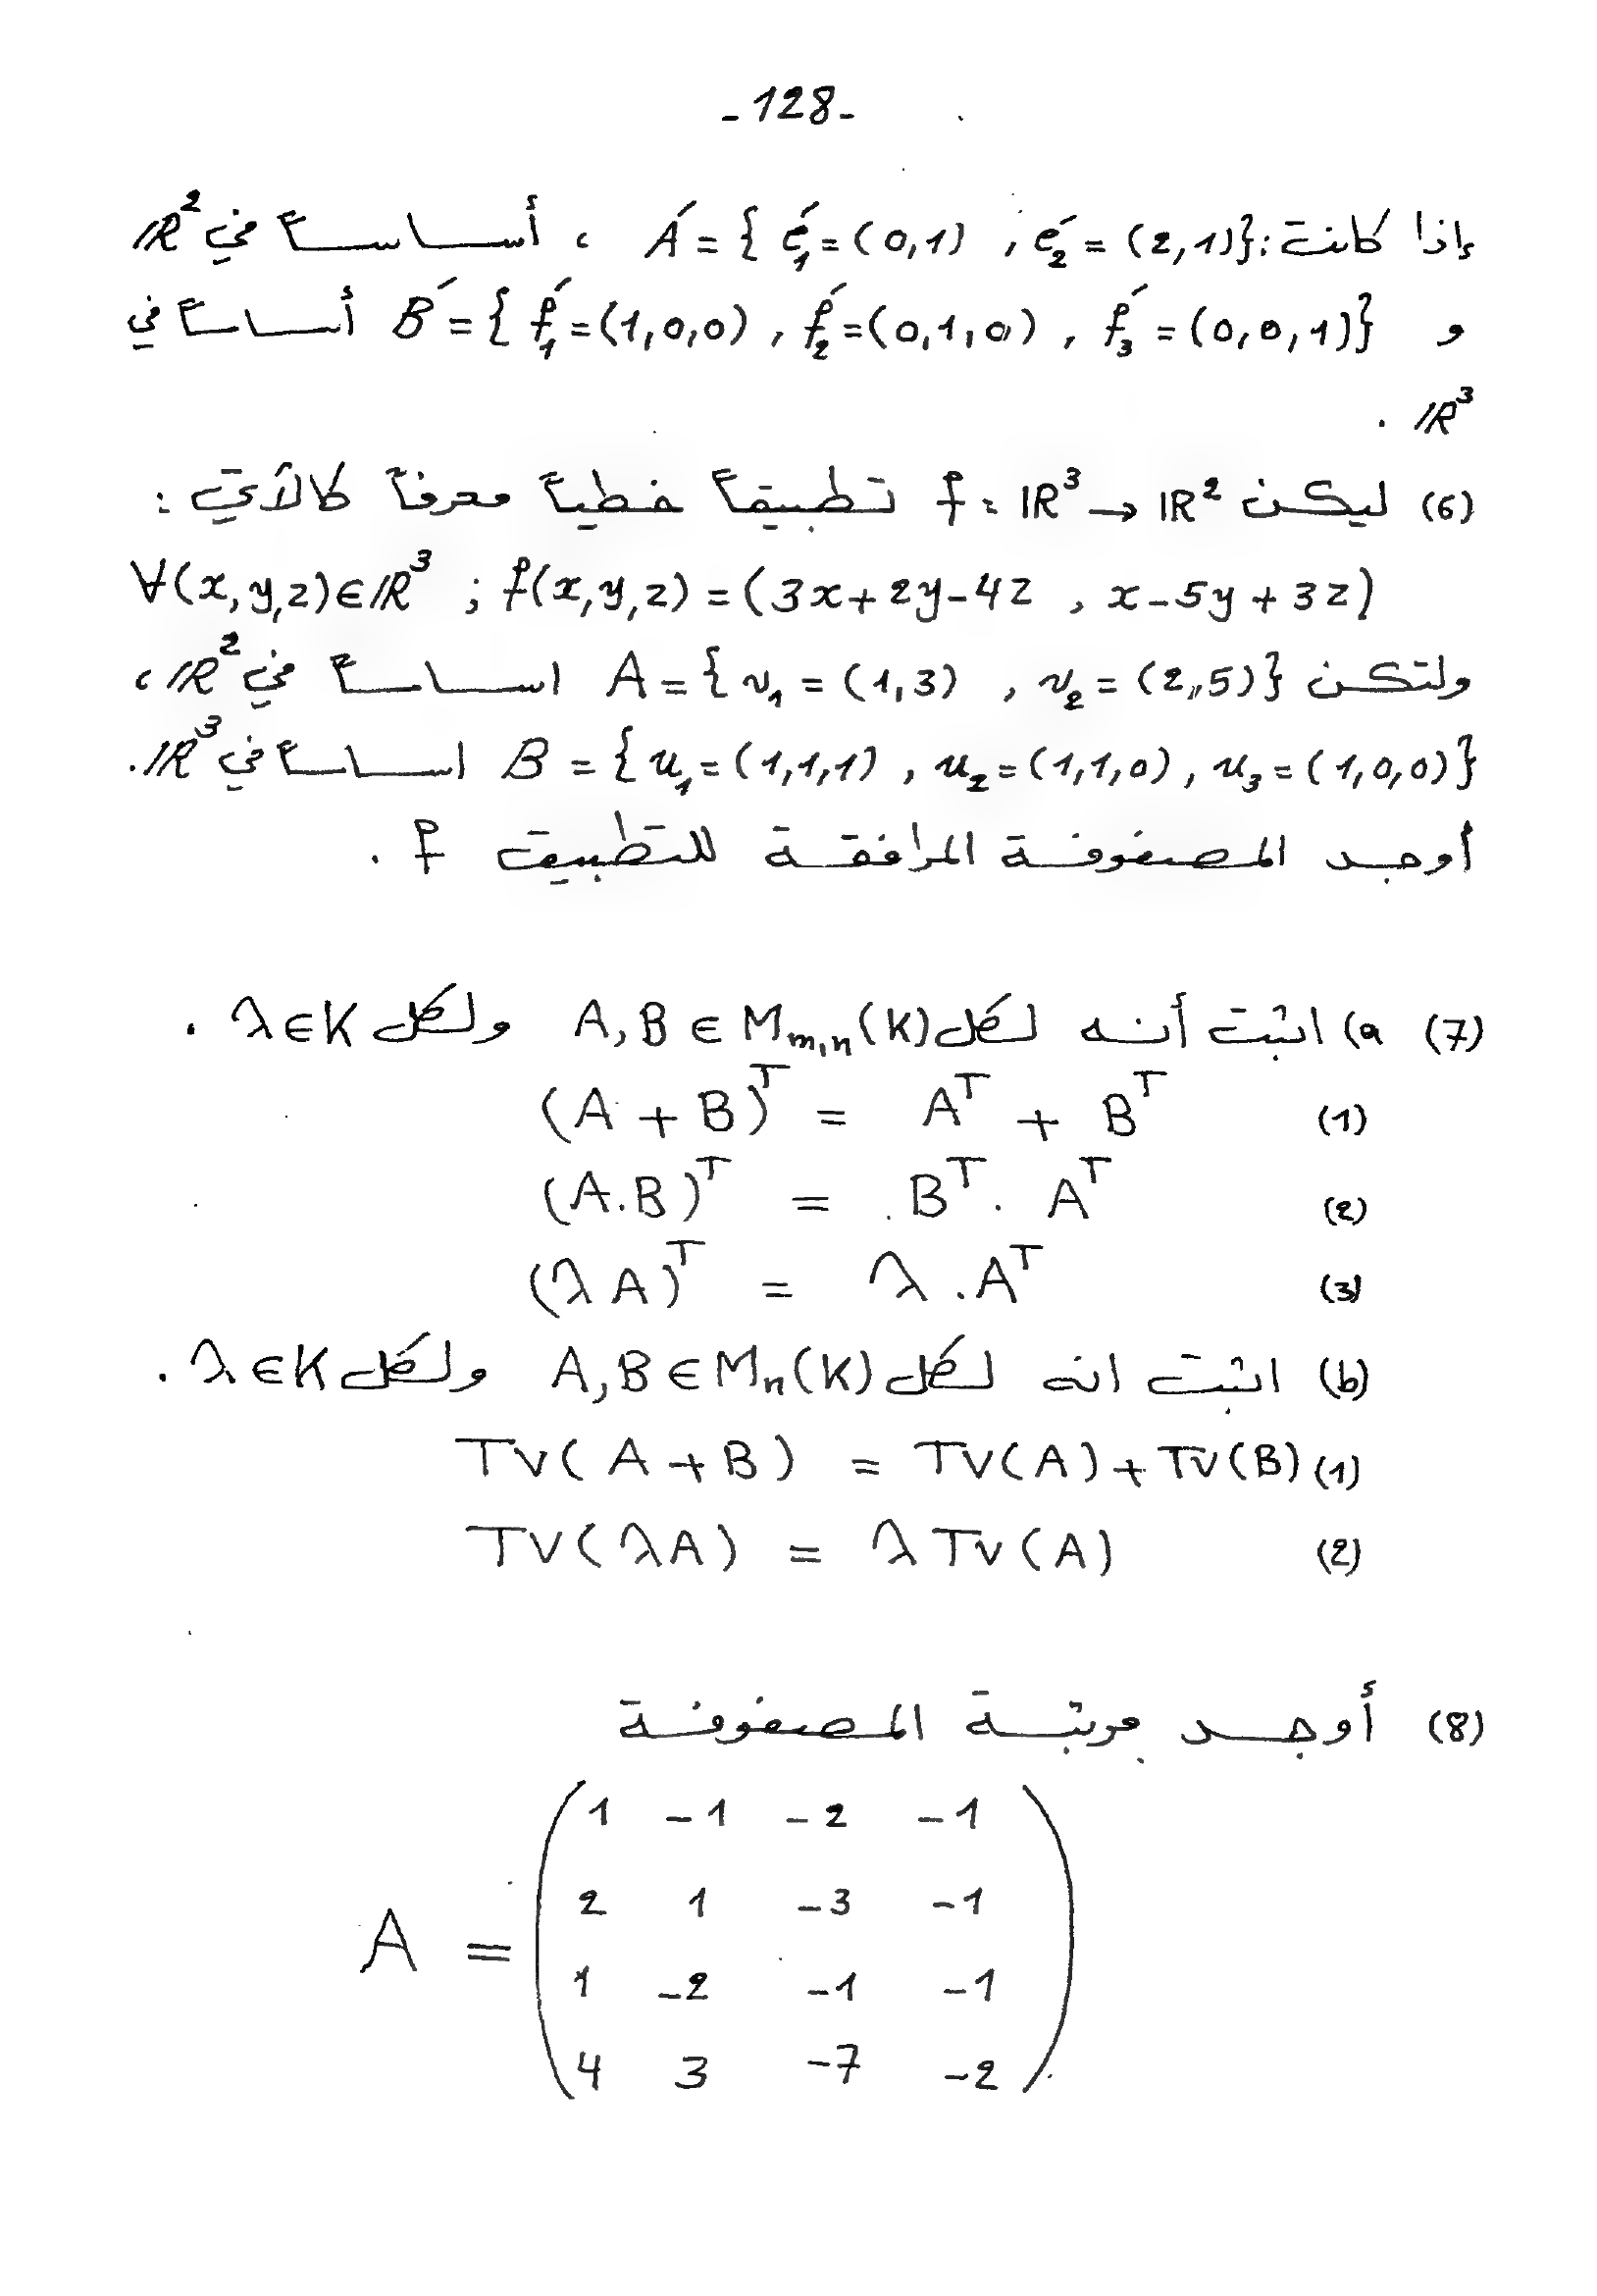 -128-
إذا كانت: A′ = { e′₁ = (0,1) , e′₂ = (2,1)} ، أساساً في ℝ²
و B′ = { f′₁ = (1,0,0) , f′₂ = (0,1,0) , f′₃ = (0,0,1)} أساساً في
ℝ³ .
(6) ليكن f : ℝ³ → ℝ² تطبيقاً خطياً معرفاً كالآتي :
∀(x,y,z) ∈ ℝ³ ; f(x,y,z) = (3x + 2y - 4z , x - 5y + 3z)
ولتكن A = { v₁ = (1,3) , v₂ = (2,5)} اساساً في ℝ² ،
B = { u₁ = (1,1,1) , u₂ = (1,1,0) , u₃ = (1,0,0)} اساساً في ℝ³ .
أوجد المصفوفة المرافقة للتطبيق f .
(7) a) اثبت أنه لكل A, B ∈ M_{m,n}(K) ولكل λ ∈ K .
(1) (A + B)ᵀ = Aᵀ + Bᵀ
(2) (A.B)ᵀ = Bᵀ . Aᵀ
(3) (λA)ᵀ = λ . Aᵀ
(b) اثبت انه لكل A, B ∈ Mₙ(K) ولكل λ ∈ K .
(1) Tr(A + B) = Tr(A) + Tr(B)
(2) Tr(λA) = λ Tr(A)
(8) أوجد مرتبة المصفوفة
1 -1 -2 -1
2 1 -3 -1
A =
1 -2 -1 -1
4 3 -7 -2